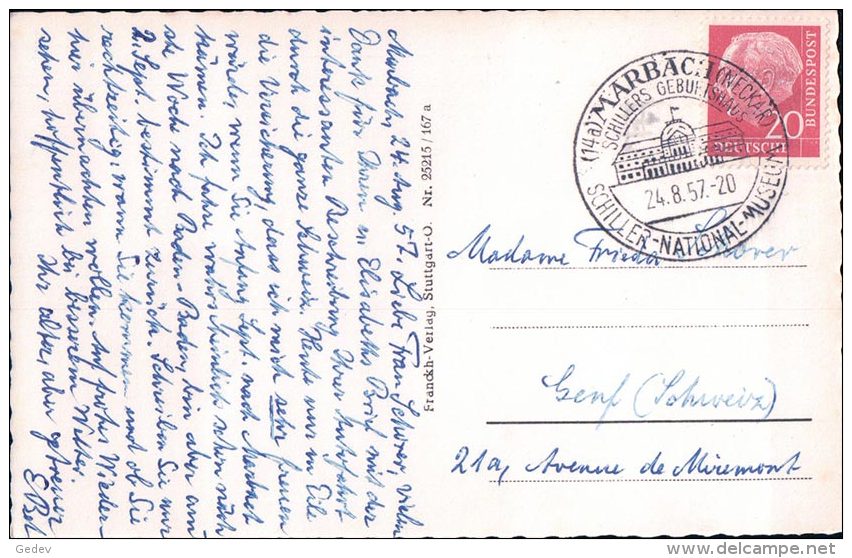 Marbach, 24. Aug. 57. Liebe Frau Schörer, vielen
Dank für Ihren u. Elisabeths Brief mit der
interessanten Beschreibung Ihrer Autofahrt
durch die ganze Schweiz. Heute nur in Eile
die Versicherung, dass ich mich sehr freuen
würde, wenn Sie Anfang Sept. nach Marbach
kämen. Ich fahre wahrscheinlich schon nächste
Woche nach Baden-Baden, bin aber am
2. Sept. bestimmt zurück. Schreiben Sie nur
rechtzeitig, wann Sie kommen und ob Sie
hier übernachten wollen. Auf frohes Wieder-
sehen, hoffentlich bei besserem Wetter.
Ihr alter, aber getreuer
Franckh-Verlag, Stuttgart-O. Nr. 25215/167 a
(14a) MARBACH (NECKAR)
SCHILLERS GEBURTSHAUS
24.8.57.-20
SCHILLER-NATIONAL-MUSEUM
20
DEUTSCHE
BUNDESPOST
Madame Frieda Schörer
Genf (Schweiz)
21a, Avenue de Miremont
Gedev
delcampe.net